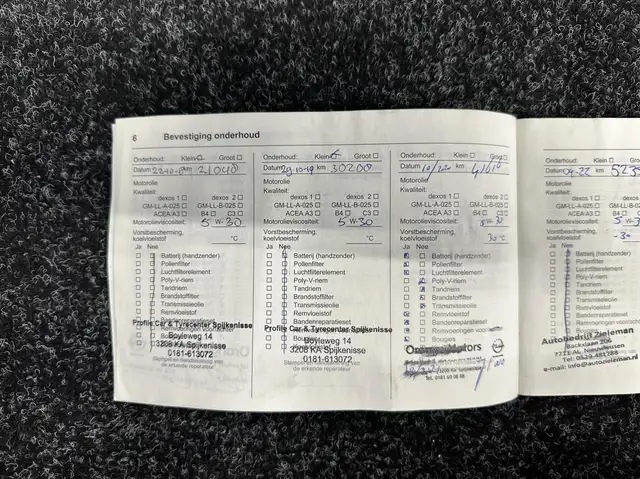 6 Bevestiging onderhoud
Onderhoud: Klein Groot
Datum 22-10-18 km 21040
Motorolie
Kwaliteit:
dexos 1 dexos 2
GM-LL-A-025 GM-LL-B-025
ACEA A3 B4 C3
Motorolieviscositeit: 5 W-30
Vorstbescherming,
koelvloeistof °C
Ja Nee
Batterij (handzender)
Pollenfilter
Luchtfilterelement
Poly-V-riem
Tandriem
Brandstoffilter
Transmissieolie
Remvloeistof
Bandenreparatieset
Profile Car & Tyrecenter Spijkenisse
Boyleweg 14
3208 KA Spijkenisse
0181-613072
Onderhoud: Klein Groot
Datum 29-10-19 km 30200
Motorolie
Kwaliteit:
dexos 1 dexos 2
GM-LL-A-025 GM-LL-B-025
ACEA A3 B4 C3
Motorolieviscositeit: 5 W-30
Vorstbescherming,
koelvloeistof °C
Ja Nee
Batterij (handzender)
Pollenfilter
Luchtfilterelement
Poly-V-riem
Tandriem
Brandstoffilter
Transmissieolie
Remvloeistof
Bandenreparatieset
Profile Car & Tyrecenter Spijkenisse
Boyleweg 14
3208 KA Spijkenisse
0181-613072
Onderhoud: Klein Groot
Datum km
Motorolie
Kwaliteit:
dexos 1 dexos 2
GM-LL-A-025 GM-LL-B-025
ACEA A3 B4 C3
Motorolieviscositeit: W
Vorstbescherming,
koelvloeistof 30 °C
Ja Nee
Batterij (handzender)
Pollenfilter
Luchtfilterelement
Poly-V-riem
Tandriem
Brandstoffilter
Transmissieolie
Remvloeistof
Bandenreparatieset
Remmingen voor
Bougies
Motors
Onderhoud: Klein
Datum 04-22 km
Motorolie
Kwaliteit:
dexos 1
GM-LL-A-025 GM-LL
ACEA A3 B4
Motorolieviscositeit: 5 W-3
Vorstbescherming,
koelvloeistof
Ja Nee
Batterij (handzender)
Pollenfilter
Luchtfilterelement
Poly-V-riem
Tandriem
Brandstoffilter
Transmissieolie
Remvloeistof
Bandenreparatieset
Autobedrijf Zieleman
Backxlaan 206
7711 AL Nieuwleusen
Tel: 0529-481788
e-mail: info@autozieleman.nl